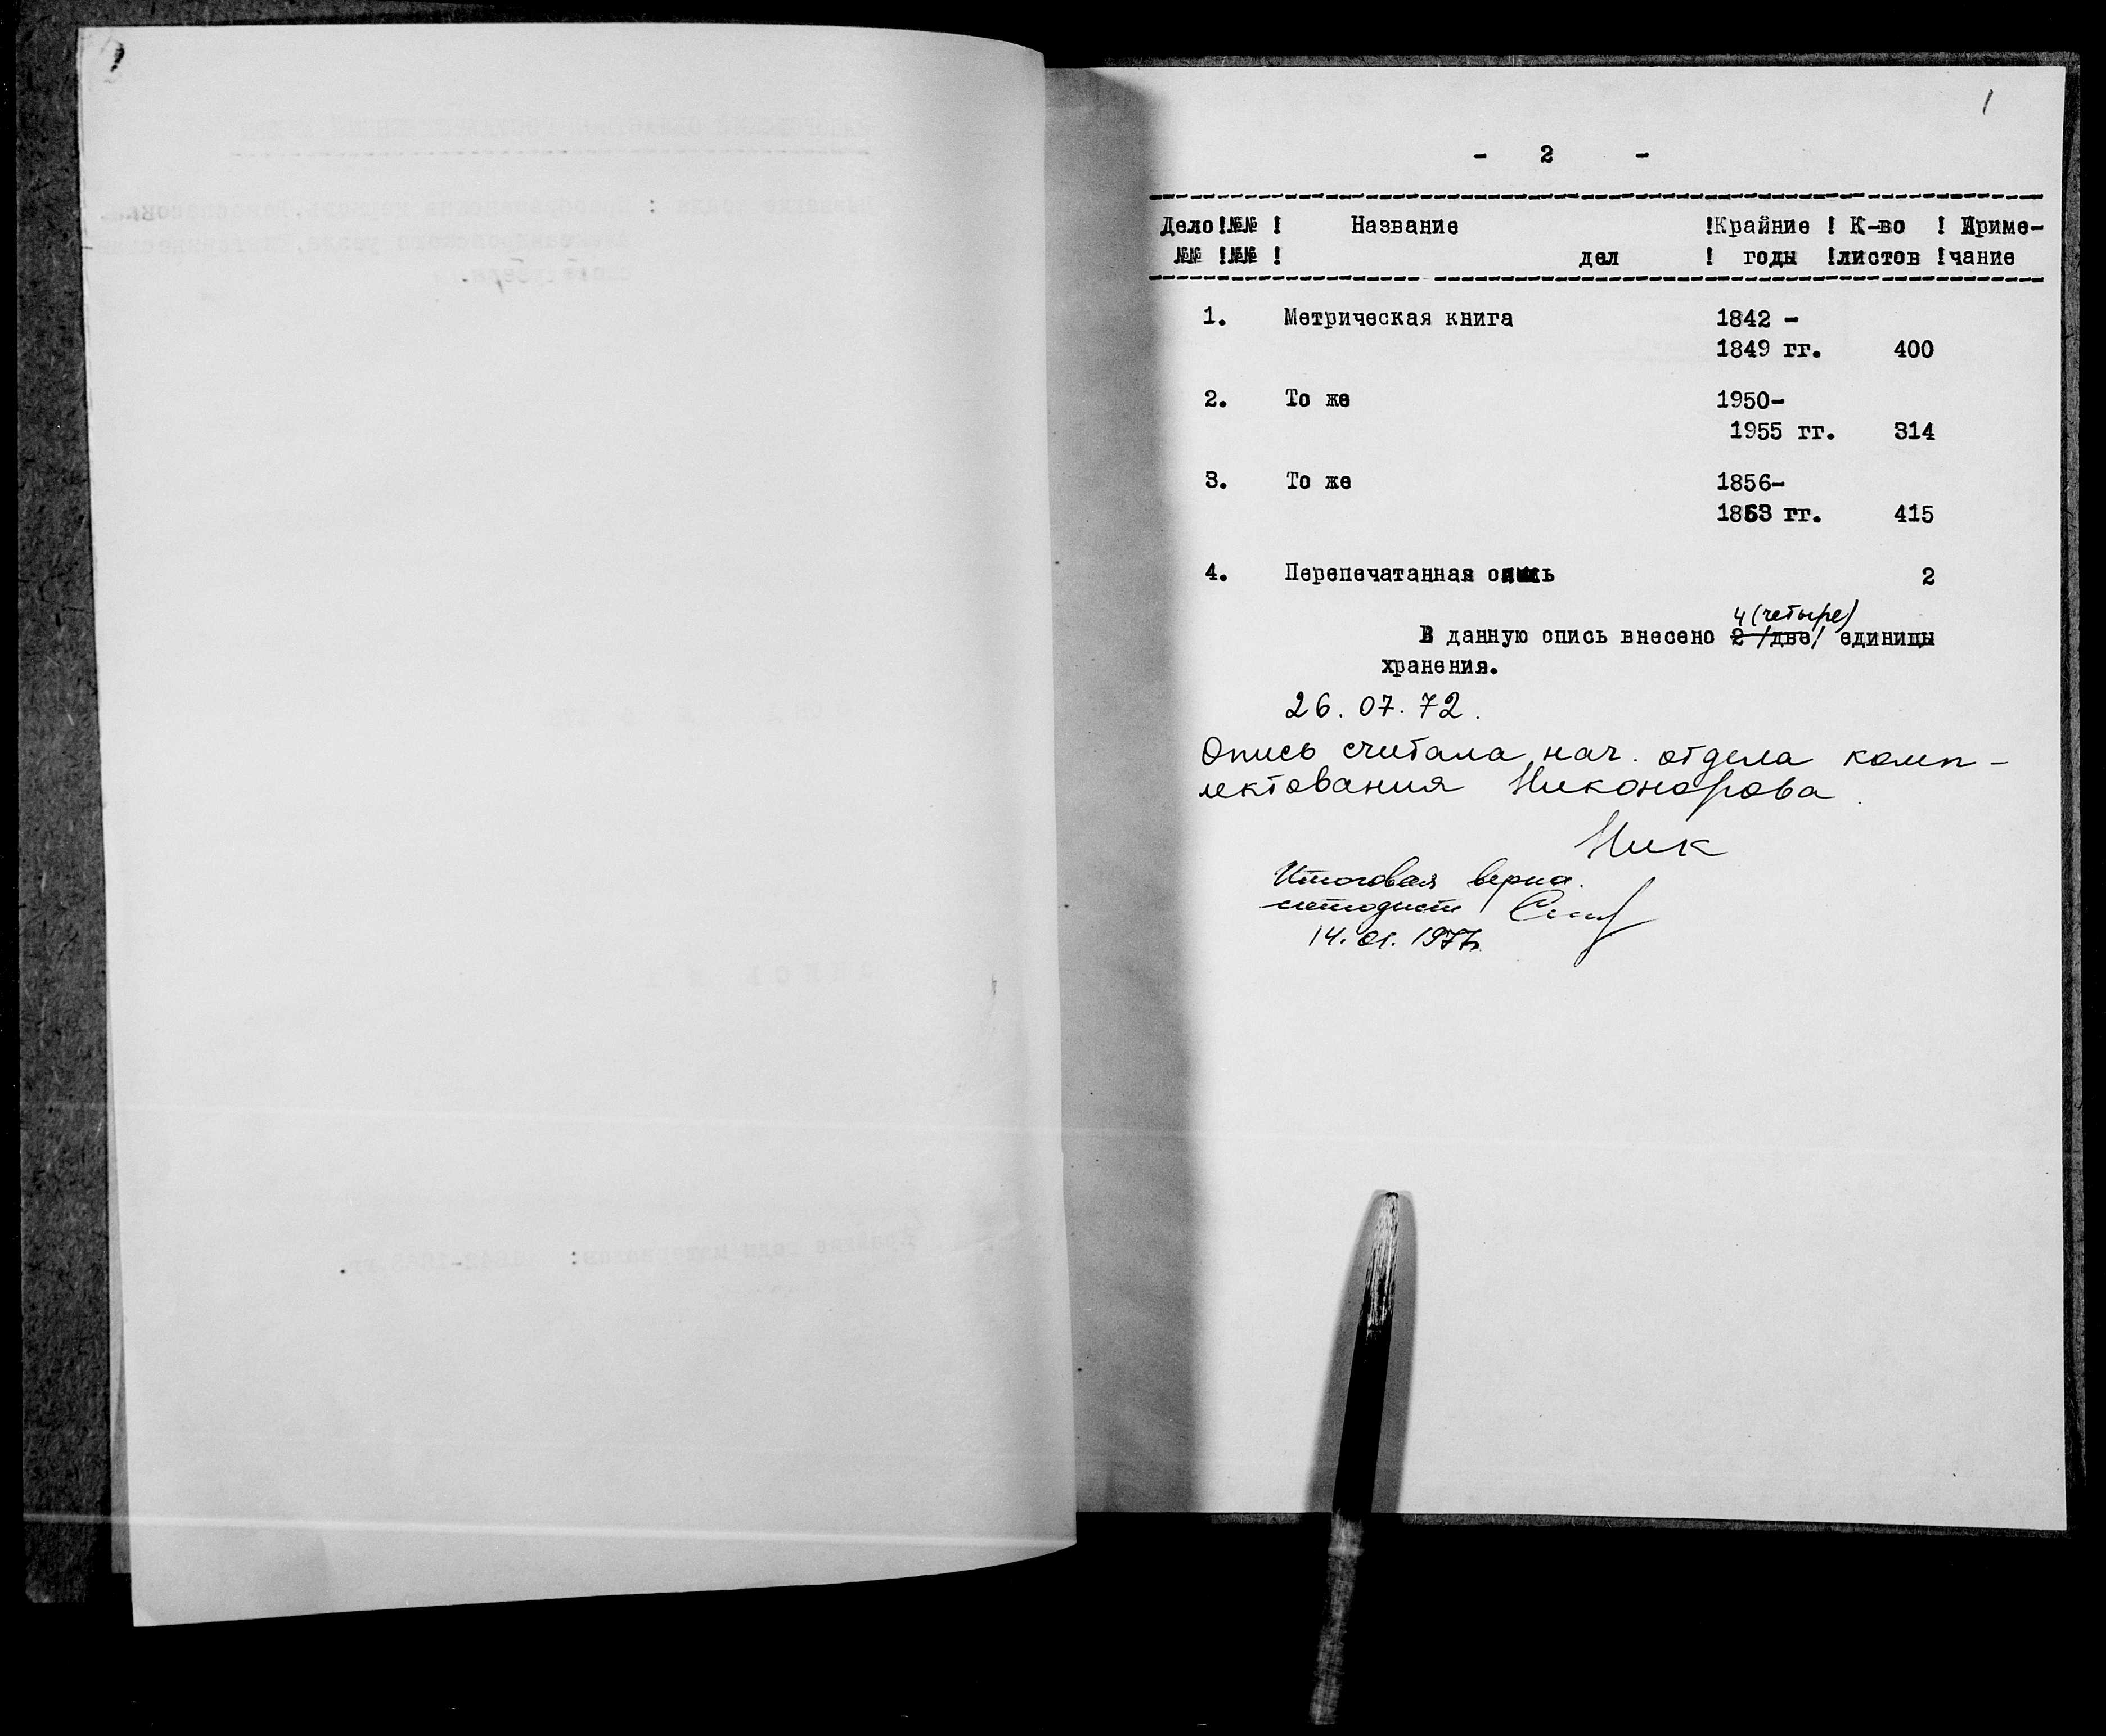 1
- 2 -
Дело !№№ ! Название !Крайние ! К-во ! Приме-
№№ !№№ ! дел ! годы !листов !чание
1. Метрическая книга 1842 -
1849 гг. 400
2. То же 1950-
1955 гг. 314
3. То же 1856-
1863 гг. 415
4. Перепечатанная опись 2
4 (четыре)
В данную опись внесено 2 /две/ единицы
хранения.
26.07.72.
Опись считала нач. отдела комп-
лектования Никонорова.
Ник
Итоговая верна.
методист
14.01.1977г.